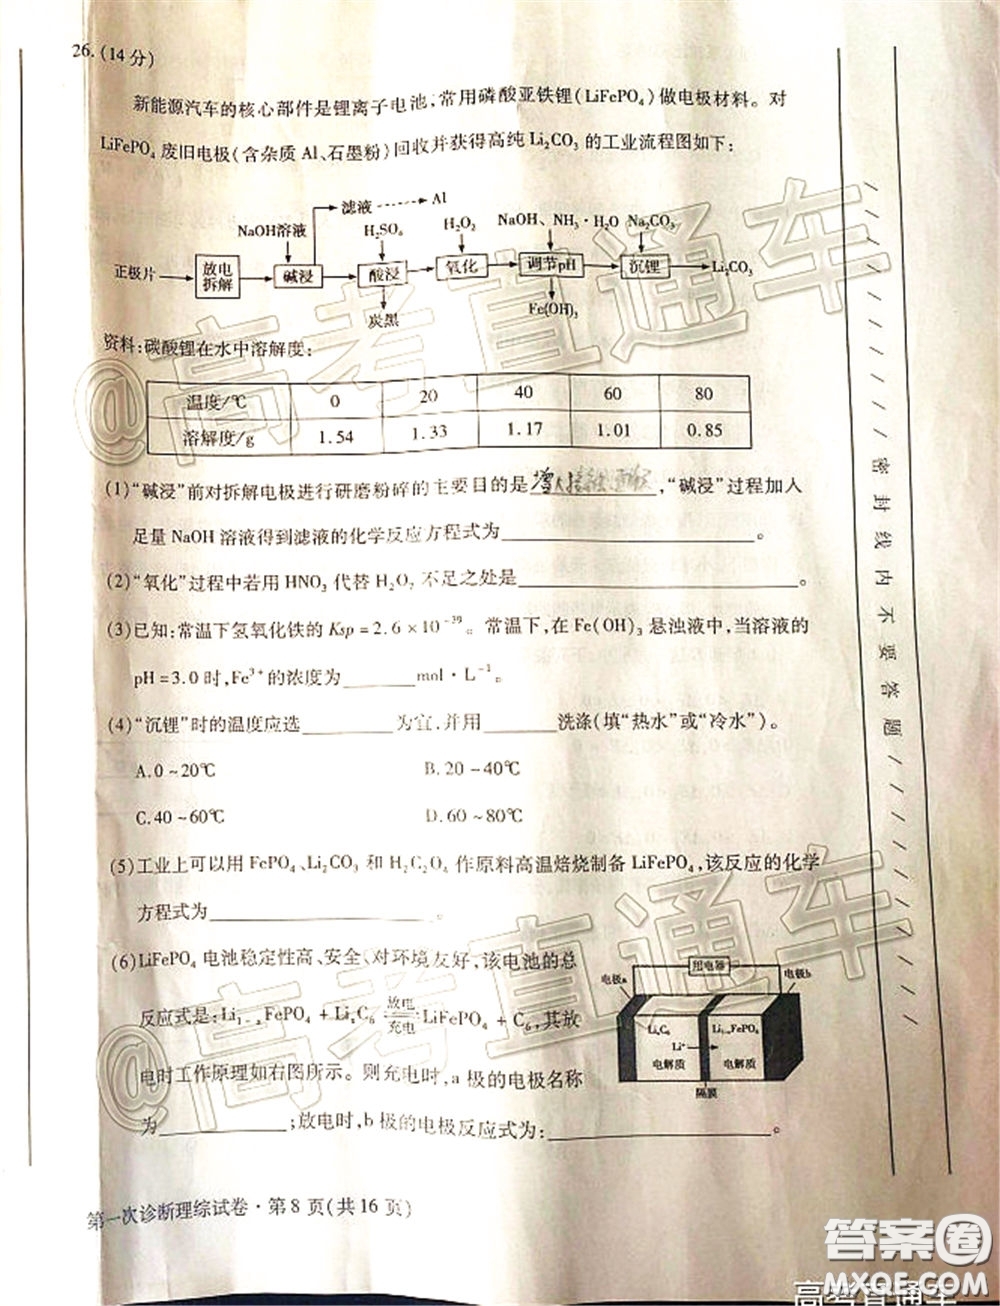 26.(14分)
新能源汽车的核心部件是锂离子电池,常用磷酸亚铁锂(LiFePO₄)做电极材料。对
LiFePO₄废旧电极(含杂质Al、石墨粉)回收并获得高纯Li₂CO₃的工业流程图如下:
滤液 Al
NaOH溶液 H₂SO₄ H₂O₂ NaOH、NH₃·H₂O Na₂CO₃
正极片 放电拆解 碱浸 酸浸 氧化 调节pH 沉锂 Li₂CO₃
炭黑 Fe(OH)₃
资料:碳酸锂在水中溶解度:
温度/℃ 0 20 40 60 80
溶解度/g 1.54 1.33 1.17 1.01 0.85
(1)“碱浸”前对拆解电极进行研磨粉碎的主要目的是 增大接触面积,“碱浸”过程加入
足量NaOH溶液得到滤液的化学反应方程式为____。
(2)“氧化”过程中若用HNO₃代替H₂O₂不足之处是____。
(3)已知:常温下氢氧化铁的Ksp=2.6×10⁻³⁹。常温下,在Fe(OH)₃悬浊液中,当溶液的
pH=3.0时,Fe³⁺的浓度为____mol·L⁻¹。
(4)“沉锂”时的温度应选____为宜,并用____洗涤(填“热水”或“冷水”)。
A.0~20℃ B.20~40℃
C.40~60℃ D.60~80℃
(5)工业上可以用FePO₄、Li₂CO₃和H₂C₂O₄作原料高温焙烧制备LiFePO₄,该反应的化学
方程式为____。
(6)LiFePO₄电池稳定性高、安全、对环境友好,该电池的总
反应式是:Li₁₋ₓFePO₄+LiₓC₆ 放电 充电 LiFePO₄+C₆,其放
电时工作原理如右图所示。则充电时,a极的电极名称
为____;放电时,b极的电极反应式为:____。
用电器
电极a 电极b
LiₓC₆ Li₁₋ₓFePO₄
Li⁺
电解质 电解质
隔膜
密封线内不要答题
第一次诊断理综试卷·第8页(共16页)
@高考直通车
@高考直通车
答案圈
MXQE.COM
高考直通车